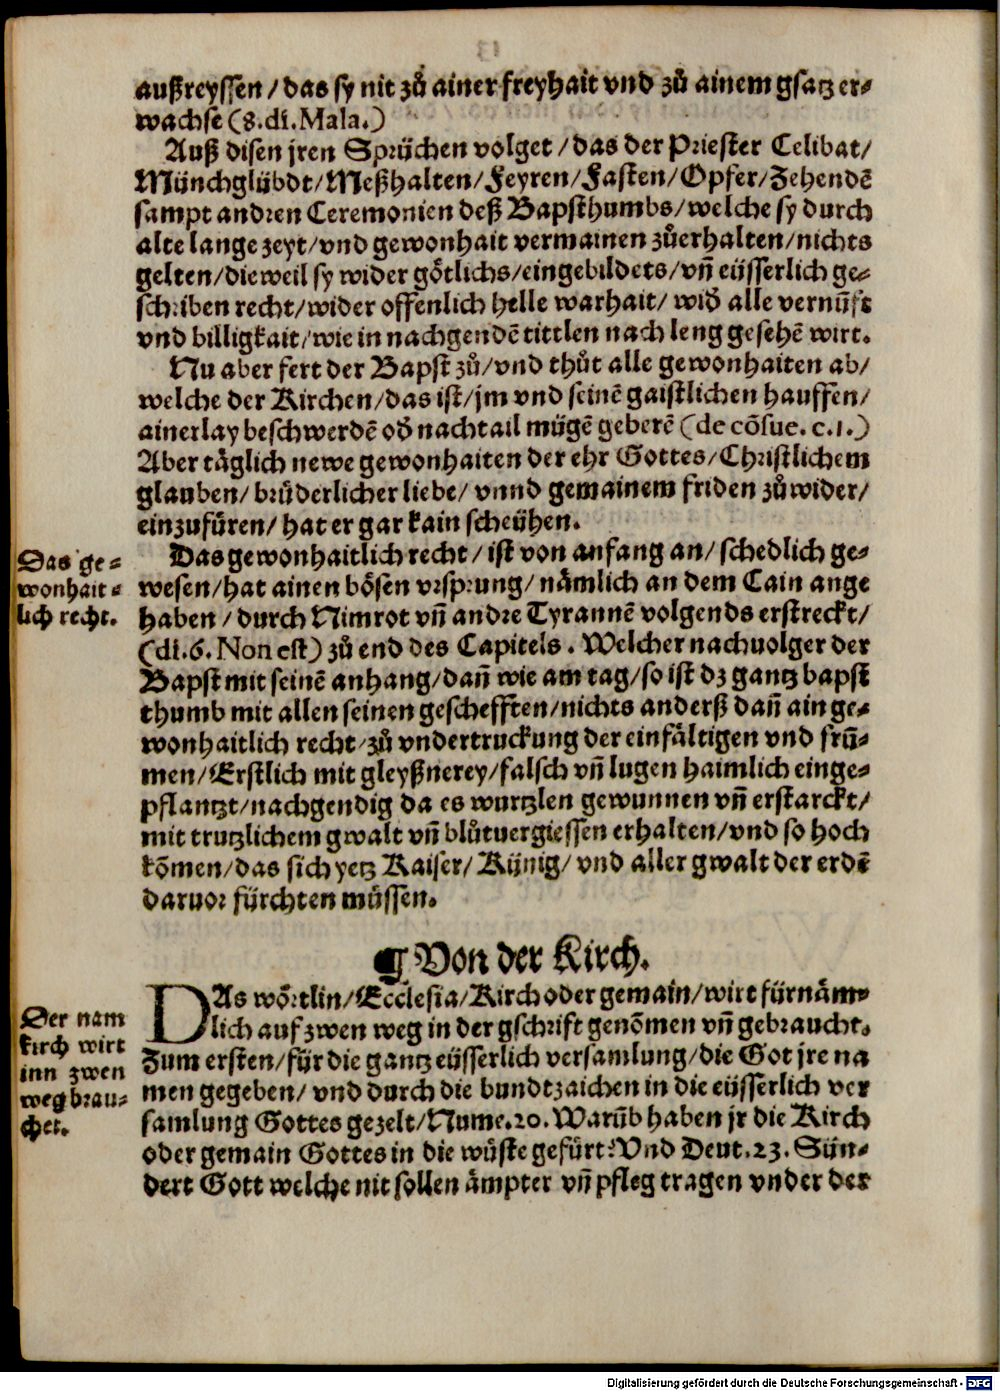 außreyssen / das sy nit zů ainer freyhait vnd zů ainem gsatz er-
wachse (8.di.Mala.)
Auß disen jren Sprüchen volget / das der Priester Celibat /
Münchglübdt / Meßhalten / Feyren / Fasten / Opfer / Zehendē
sampt andren Ceremonien deß Bapsthumbs / welche sy durch
alte lange zeyt / vnd gewonhait vermainen zůerhalten / nichts
gelten / dieweil sy wider götlichs / eingebildets / vñ eüsserlich ge-
schriben recht / wider offenlich helle warhait / wiď alle vernūft
vnd billigkait / wie in nachgendē tittlen nach leng gesehē wirt.
Nu aber fert der Bapst zů / vnd thůt alle gewonhaiten ab /
welche der Kirchen / das ist / jm vnd seinē gaistlichen hauffen /
ainerlay beschwerdē oď nachtail mügē geberē (de cōsue. c.1.)
Aber täglich newe gewonhaiten der ehr Gottes / Christlichem
glauben / brüderlicher liebe / vnnd gemainem friden zůwider /
einzufüren / hat er gar kain scheühen.
Das ge-
wonhait-
lich recht.
Das gewonhaitlich recht / ist von anfang an / schedlich ge-
wesen / hat ainen bösen vrsprung / nämlich an dem Cain ange
haben / durch Nimrot vñ andre Tyrannē volgends erstreckt /
(di.6. Non est) zů end des Capitels. Welcher nachuolger der
Bapst mit seinē anhang / dañ wie am tag / so ist dz gantz bapst
thumb mit allen seinen geschefften / nichts anderß dañ ain ge-
wonhaitlich recht / zů vndertruckung der einfältigen vnd frū-
men / Erstlich mit gleyßnerey / falsch vñ lugen haimlich einge-
pflantzt / nachgendig da es wurtzlen gewunnen vñ erstarckt /
mit trutzlichem gwalt vñ blůtuergiessen erhalten / vnd so hoch
kōmen / das sich yetz Kaiser / Künig / vnd aller gwalt der erdē
daruor fürchten müssen.
¶ Von der Kirch.
Der nam
kirch wirt
inn zwen
weg brau-
chet.
DAs wörtlin / Ecclesia / Kirch oder gemain / wirt fürnäm-
lich auf zwen weg in der gschrift genōmen vñ gebraucht.
Zum ersten / für die gantz eüsserlich versamlung / die Got jre na
men gegeben / vnd durch die bundtzaichen in die eüsserlich ver
samlung Gottes gezelt / Nume.20. Warūb haben jr die Kirch
oder gemain Gottes in die wůste gefürt? Vnd Deut.23. Sün-
dert Gott welche nit sollen ämpter vñ pfleg tragen vnder der
Digitalisierung gefördert durch die Deutsche Forschungsgemeinschaft - DFG